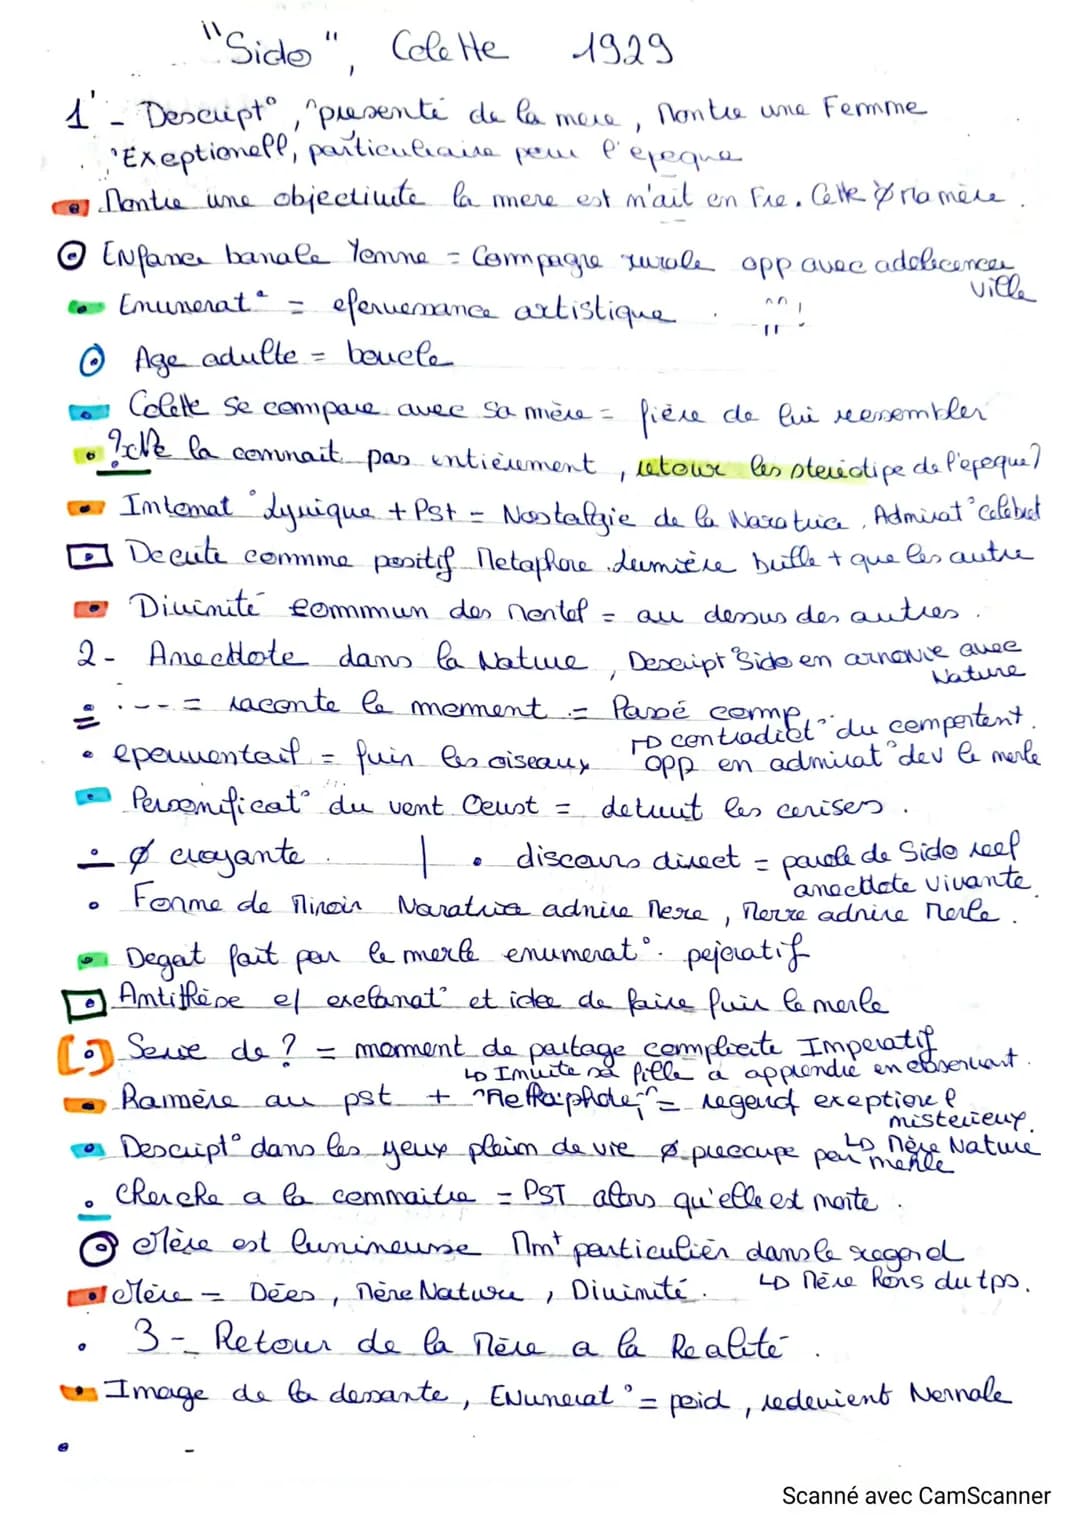 "Sido", Colette 1929
1 - Descript°, présenté de la mere, Montre une Femme
Exeptionell, particuliaire pour l'epeque
Montre une objectivité la mere est m'ait en Fre. Cette Ø Ma mère.
Enfance banale Yonne = Campagne rurale opp avec adolecences
ville
Enumerat° = efervessance artistique
Age adulte = boucle
Colette se compare avec sa mère = fière de lui ressembler
? la connait pas entièrement, retour les stereotipe de l'epeque?
Intonat° Lyrique + Pst = Nostalgie de la Naratrice, Admirat° Celebret
Decrite comme positif Metaphore lumière brille + que les autre
Divinité commun des mortel = au dessus des autres.
2 - Anecdote dans la Nature, Descript° Sido en armonie avec
Nature
. -- = raconte le moment = Passé comp
↳ contradict° du comportent.
epouventail = fuir les oiseaux opp en admirat° dev le merle
Personificat° du vent Oeust = detruit les cerises.
Ø croyante. | . discours direct = parole de Sido reel
anecdote vivante.
Forme de Miroir Naratrice admire Mere, Merre admire Merle.
Degat fait par le merle enumerat°. pejoratif
Antithèse et exclanat° et idee de faire fuir le merle
Serie de ? = moment de partage complicite Imperatif
↳ Invite sa fille a apprendre en observant.
Ramère au pst + "Metaphore" = regard exeptionel
misterieux.
Descript° dans les yeux pleim de vie Ø preocupe par merle
↳ Mère Nature
Cherche a la connaitre = PST alors qu'elle est morte.
Mère est lumineusse Mmt particulièr dans le regard
Mère = Dées, Mère Nature, Divinité. ↳ Mère Hors du tps.
3 - Retour de la Mère a la Realité.
Image de la dessante, Enumerat° = poid, redevient Normale
Scanné avec CamScanner